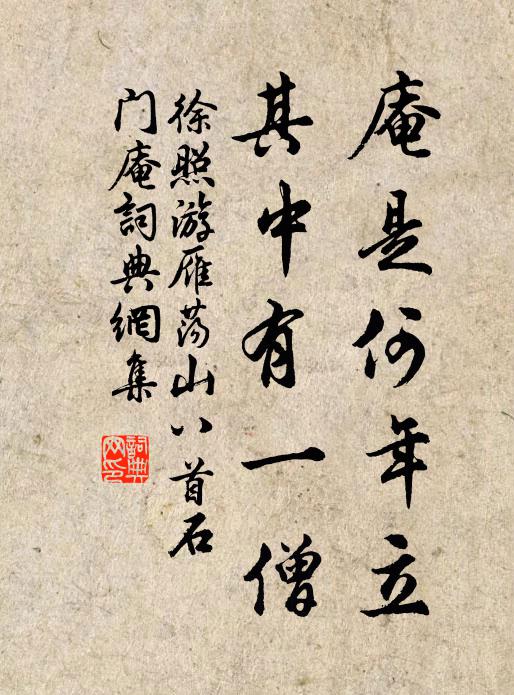 庵是何年立
其中有一僧
徐照游雁荡山八首石
门庵詞典網集
詞典网印